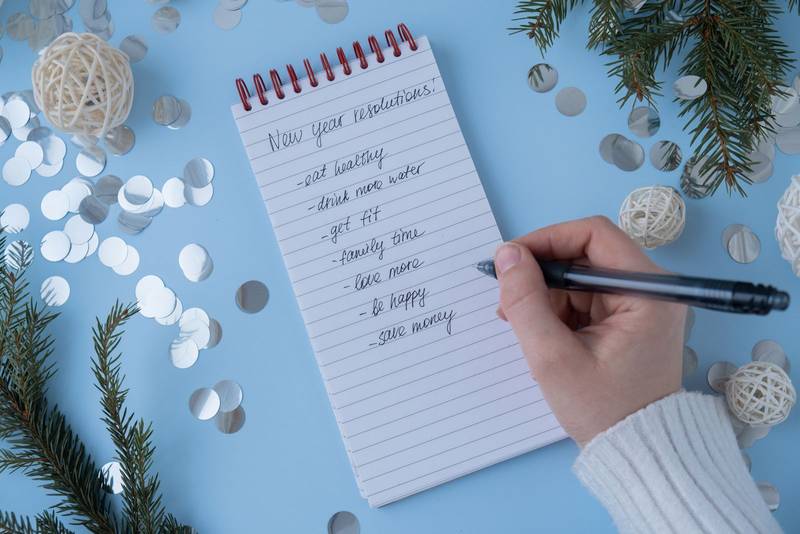 New year resolutions!
-eat healthy
-drink more water
-get fit
-family time
-love more
-be happy
-save money